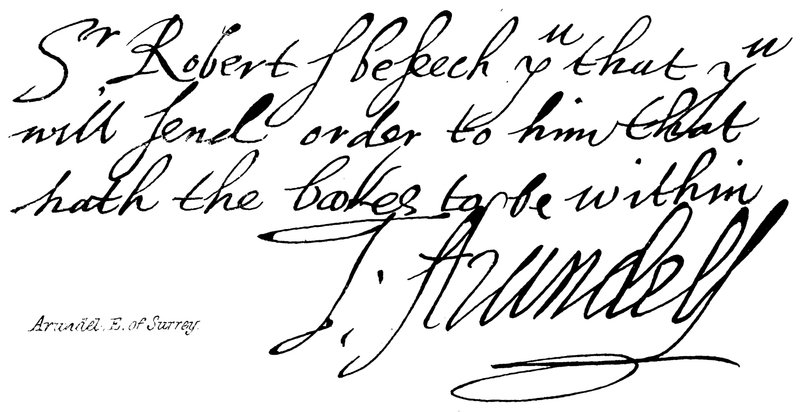 Sr Robert I beseech yu that yu
will send order to him that
hath the bookes to be within
T. Arundell
Arundel. E. of Surrey.